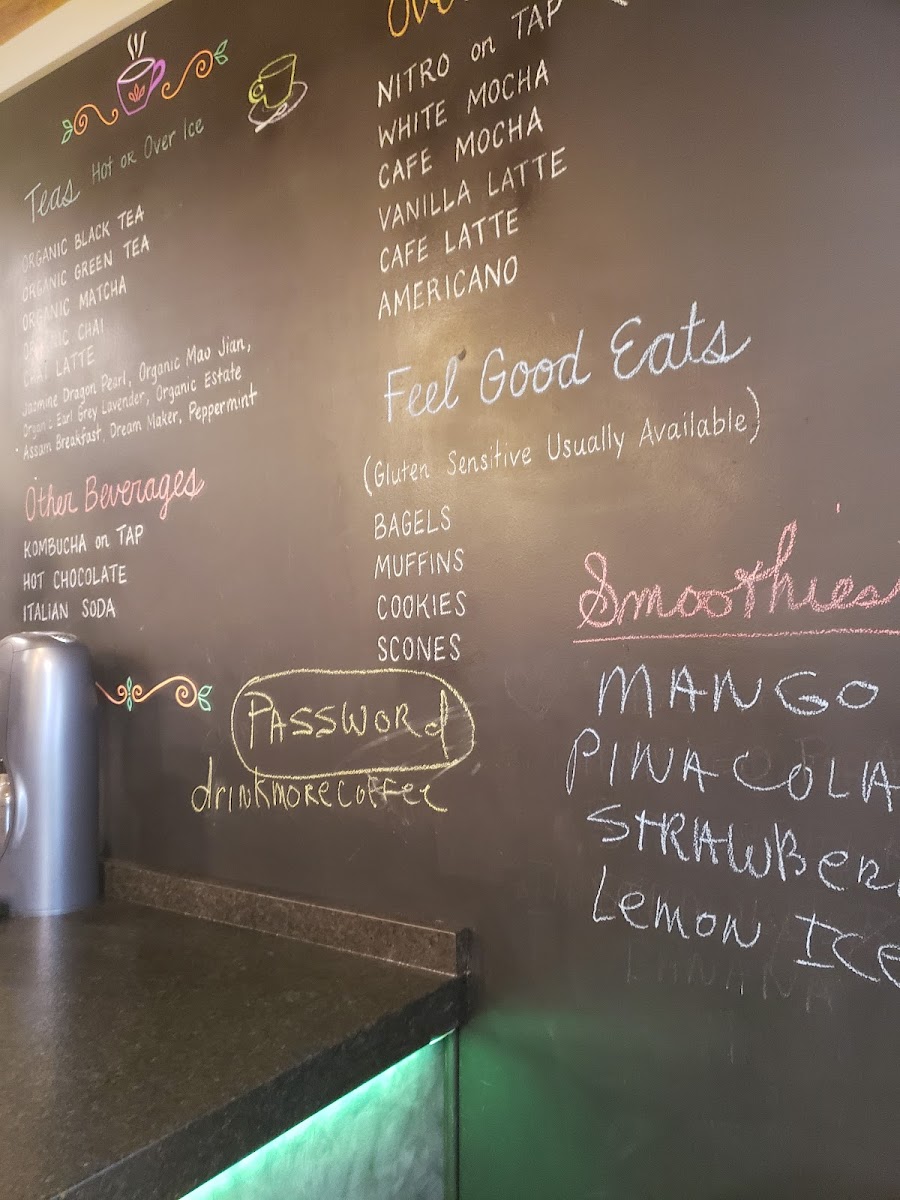 Teas Hot or Over Ice
ORGANIC BLACK TEA
ORGANIC GREEN TEA
ORGANIC MATCHA
ORGANIC CHAI
CHAI LATTE
Jazmine Dragon Pearl, Organic Mao Jian,
Organic Earl Grey Lavender, Organic Estate
Assam Breakfast, Dream Maker, Peppermint
Other Beverages
KOMBUCHA on TAP
HOT CHOCOLATE
ITALIAN SODA
NITRO on TAP
WHITE MOCHA
CAFE MOCHA
VANILLA LATTE
CAFE LATTE
AMERICANO
Feel Good Eats
(Gluten Sensitive Usually Available)
BAGELS
MUFFINS
COOKIES
SCONES
PASSWORd
drinkmorecoffee
Smoothies
MANGO
PINA COLA
STRAWBER
Lemon ICE